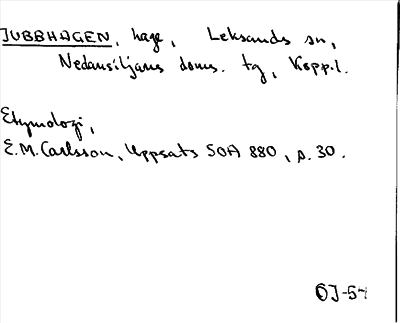 JUBBHAGEN, hage, Leksands sn,
Nedansiljans doms. tg, Kopp.l.
Etymologi,
E.M. Carlsson, Uppsats SOA 880, s. 30.
OJ-54